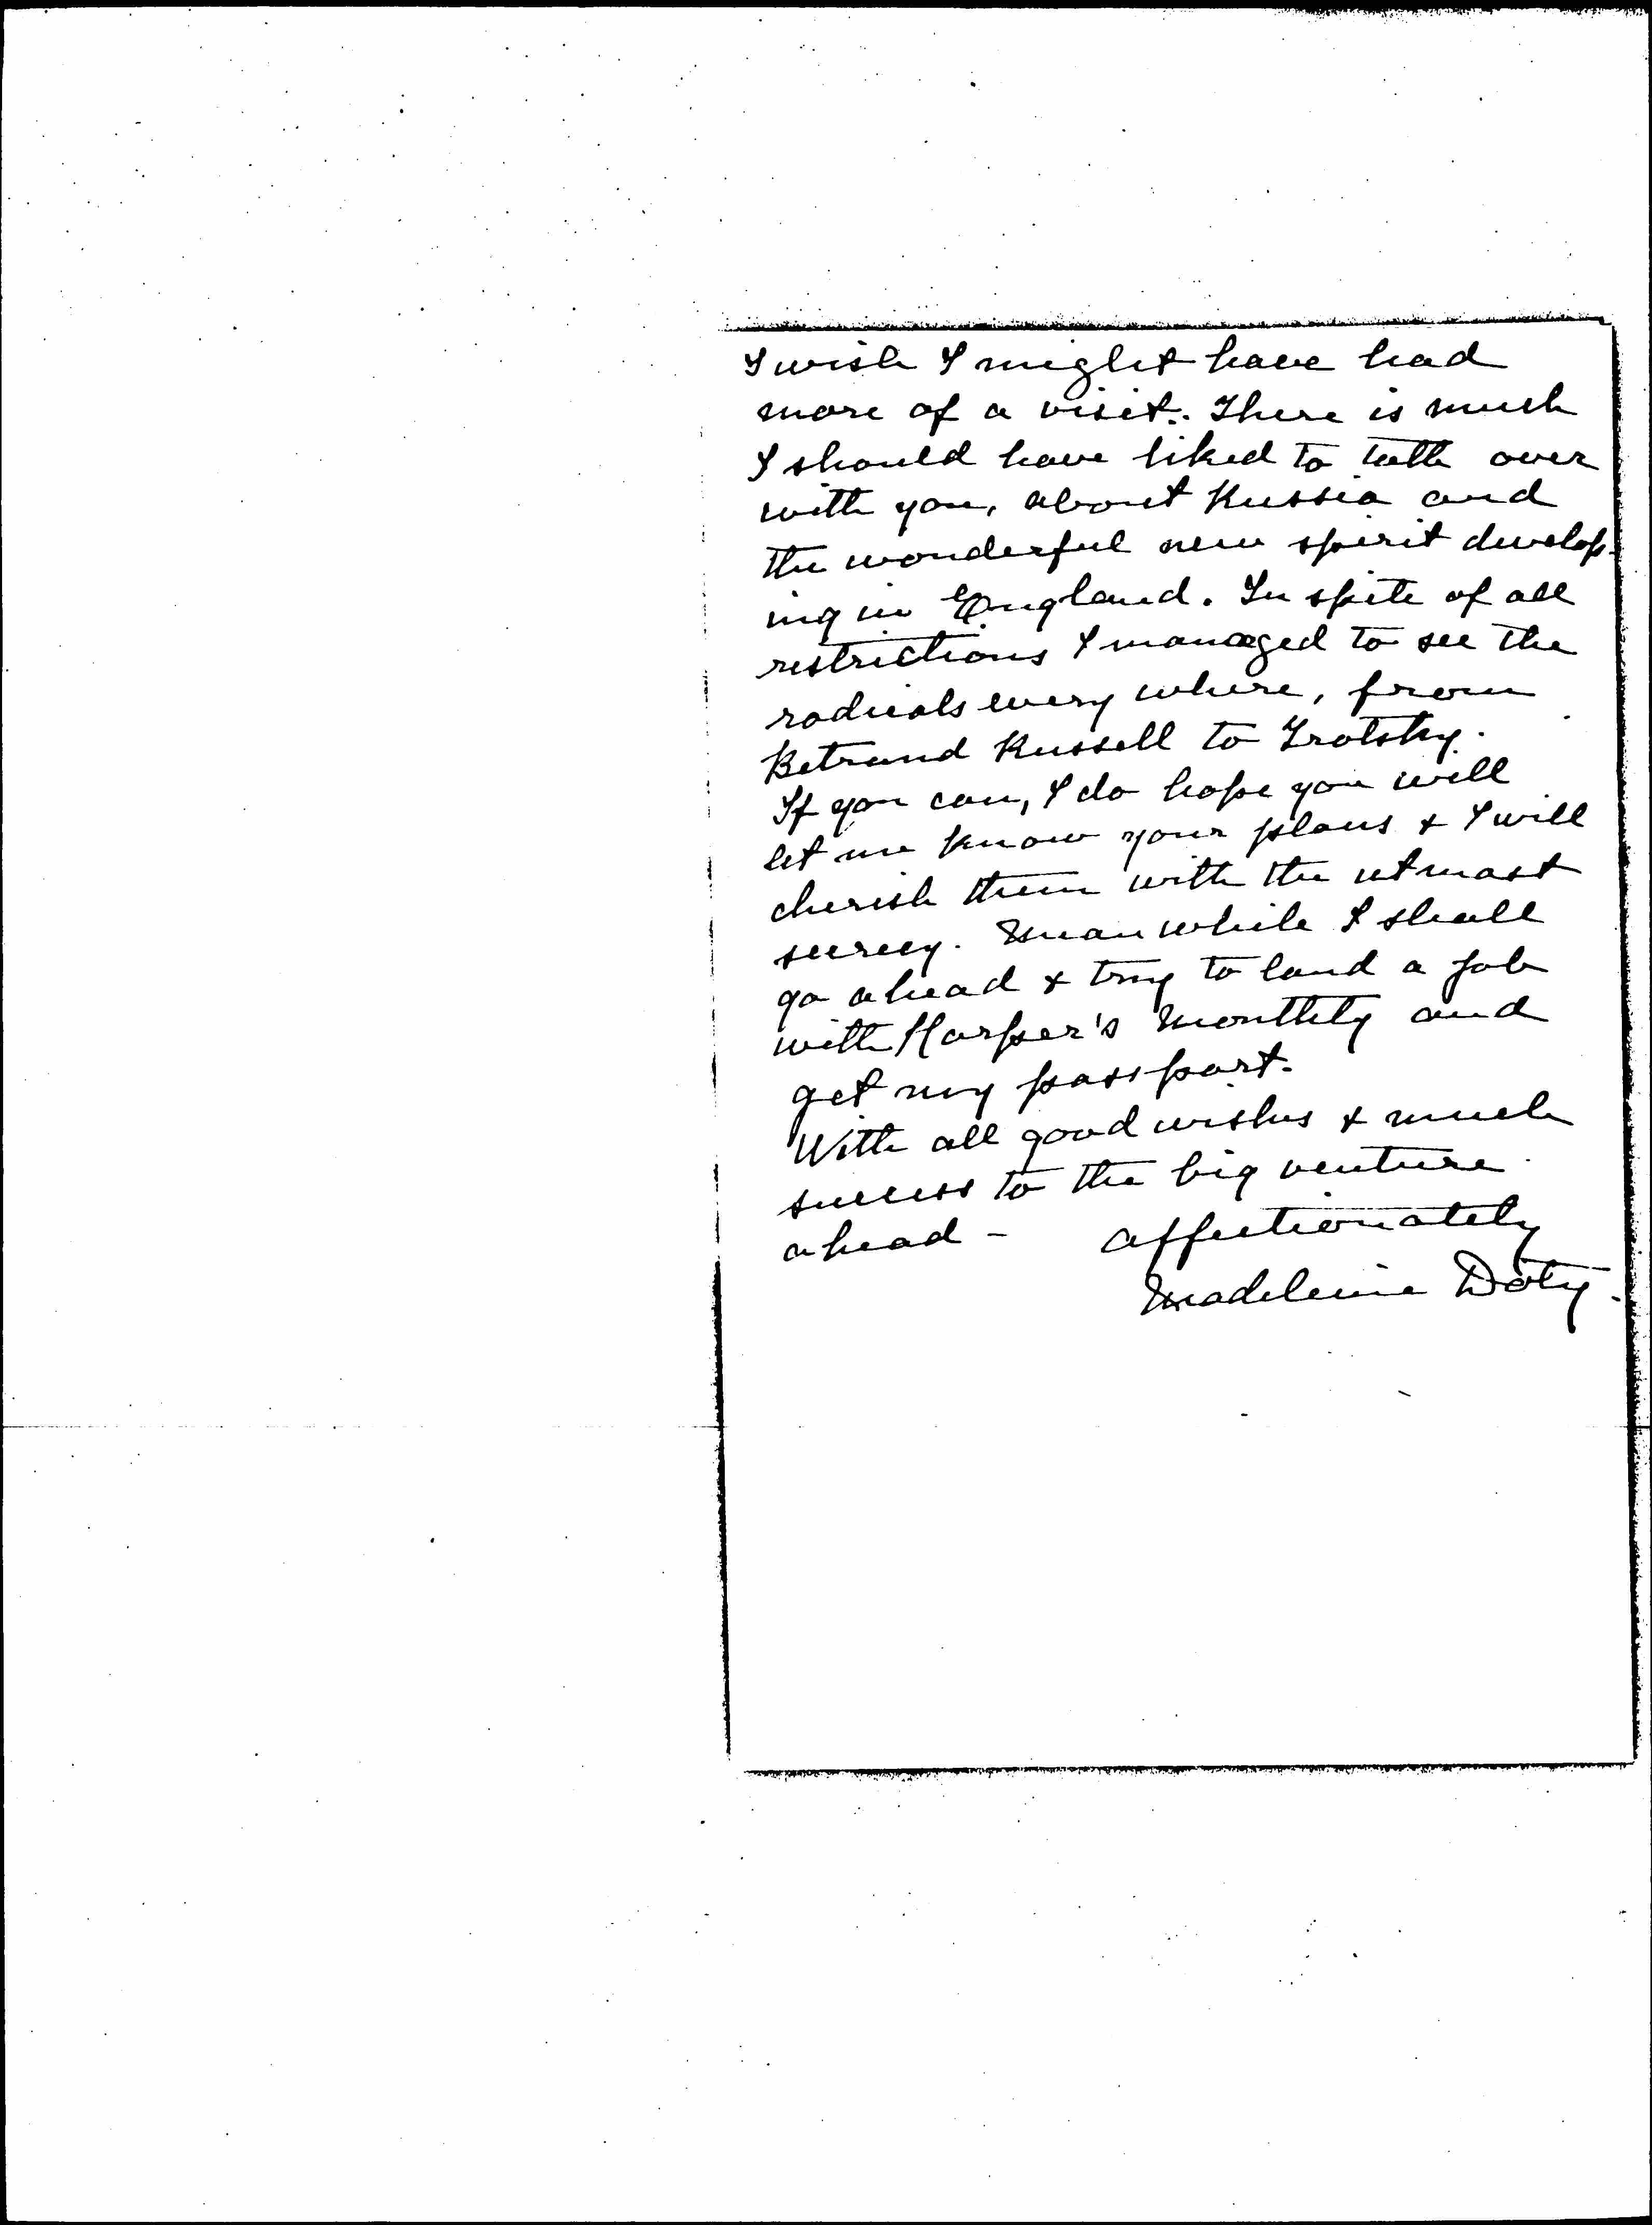 I wish I might have had
more of a visit. There is much
I should have liked to talk over
with you, about Russia and
the wonderful new spirit develop-
ing in England. In spite of all
restrictions I managed to see the
radicals every where, from
Betrand Russell to Trotsky.
If you can, I do hope you will
let me know your plans & I will
cherish them with the utmost
secrecy. Meanwhile I shall
go ahead & try to land a job
with Harper's Monthly and
get my passport.
With all good wishes & much
success to the big venture
ahead - affectionately
Madeleine Doty.